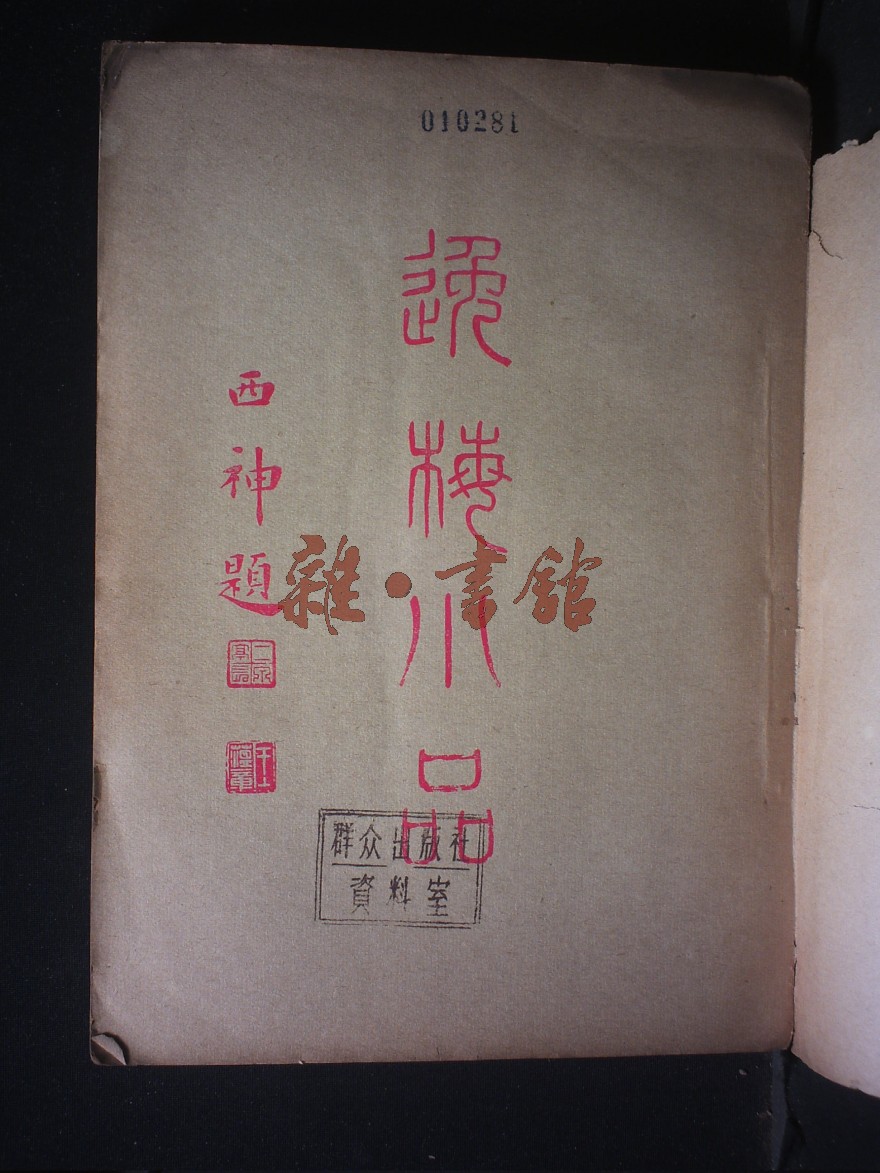 010281
逸梅小品
西神題
雜·書館
群众出版社
資料室